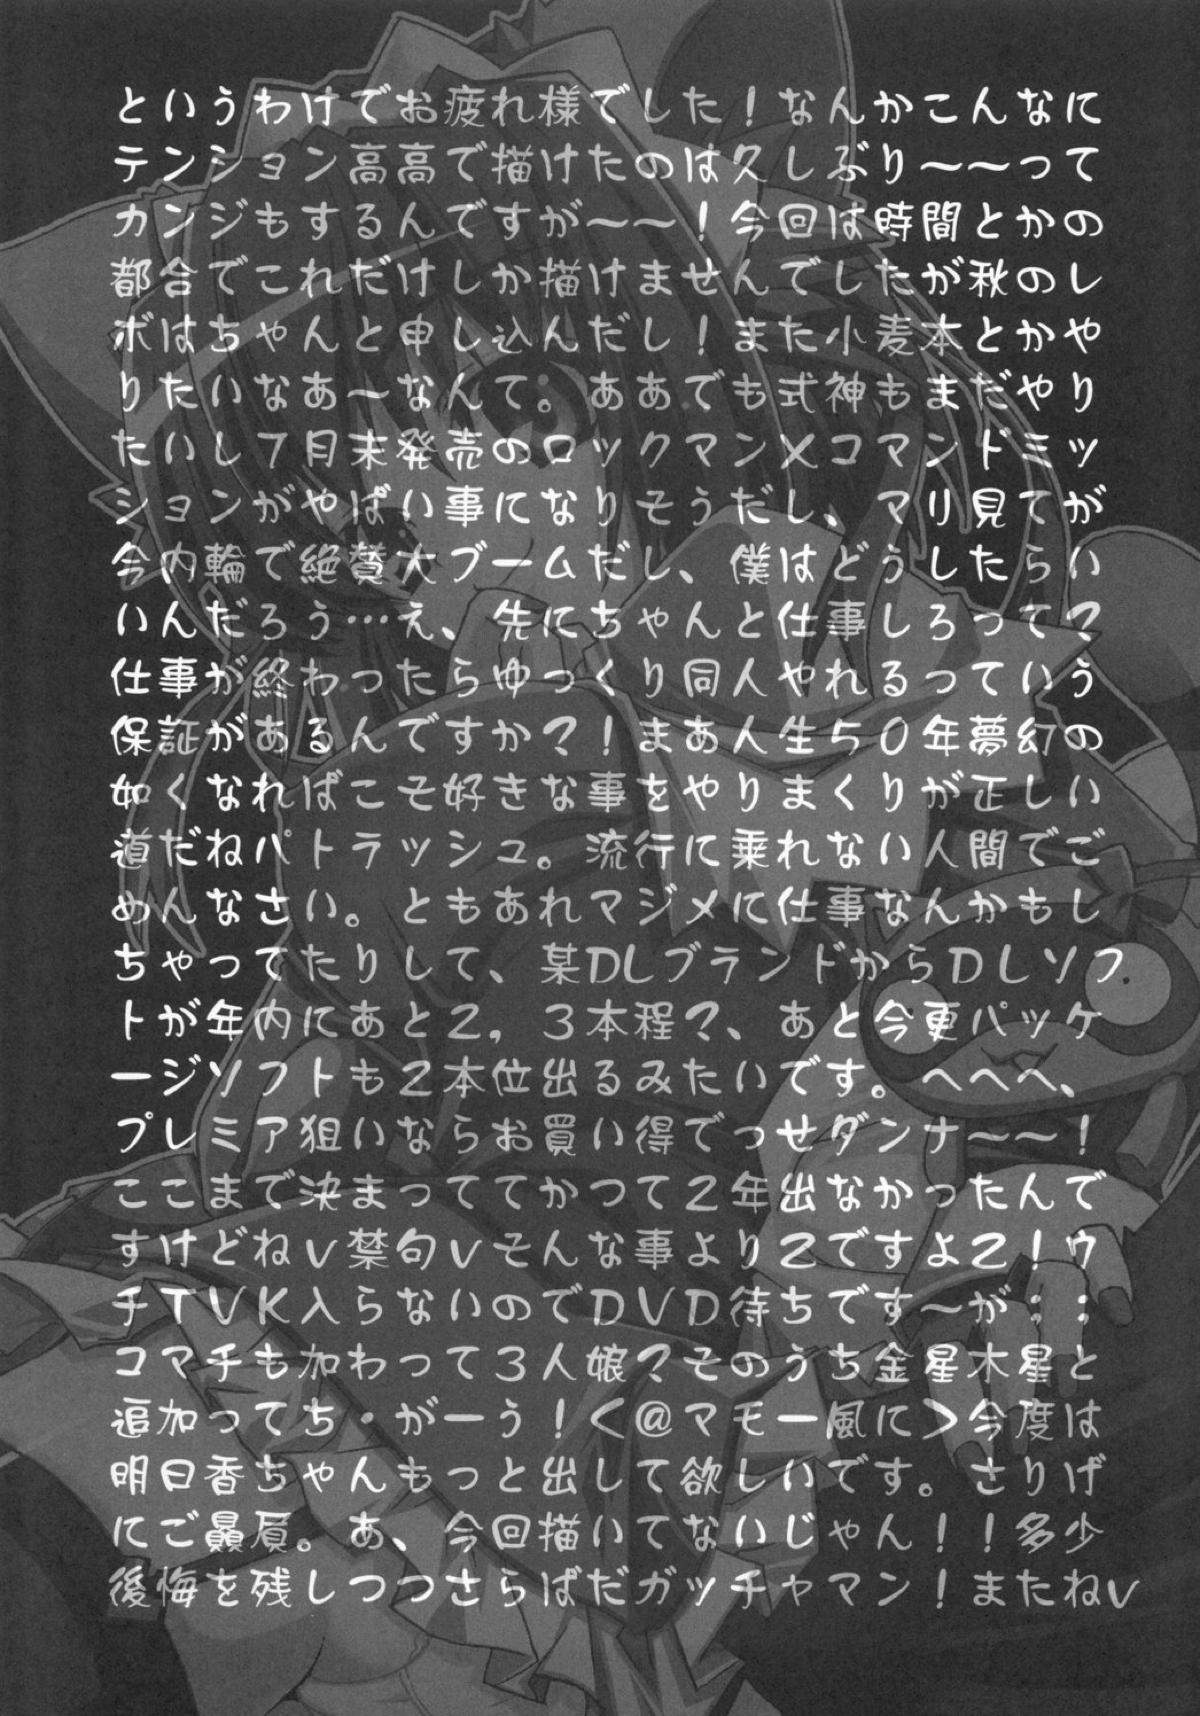 というわけでお疲れ様でした！なんかこんなに
テンション高高で描けたのは久しぶり～～って
カンジもするんですが～～！今回は時間とかの
都合でこれだけしか描けませんでしたが秋のレ
ボはちゃんと申し込んだし！また小麦本とかや
りたいなあ～なんて。ああでも式神もまだやり
たいし７月末発売のロックマンＸコマンドミッ
ションがやばい事になりそうだし、マリ見てが
今内輪で絶賛大ブームだし、僕はどうしたらい
いんだろう…え、先にちゃんと仕事しろって？
仕事が終わったらゆっくり同人やれるっていう
保証があるんですか？！まあ人生５０年夢幻の
如くなればこそ好きな事をやりまくりが正しい
道だねパトラッシュ。流行に乗れない人間でご
めんなさい。ともあれマジメに仕事なんかもし
ちゃってたりして、某ＤＬブランドからＤＬソフ
トが年内にあと２，３本程？、あと今更パッケ
ージソフトも２本位出るみたいです。へへへ、
プレミア狙いならお買い得でっせダンナ～～！
ここまで決まっててかつて２年出なかったんで
すけどねＶ禁句Ｖそんな事よりＺですよＺ！ウ
チＴＶＫ入らないのでＤＶＤ待ちです～が；；
コマチも加わって３人娘？そのうち金星木星と
追加ってち・がーう！＜＠マモー風に＞今度は
明日香ちゃんもっと出して欲しいです。さりげ
にご贔屓。あ、今回描いてないじゃん！！多少
後悔を残しつつさらばだガッチャマン！またねＶ